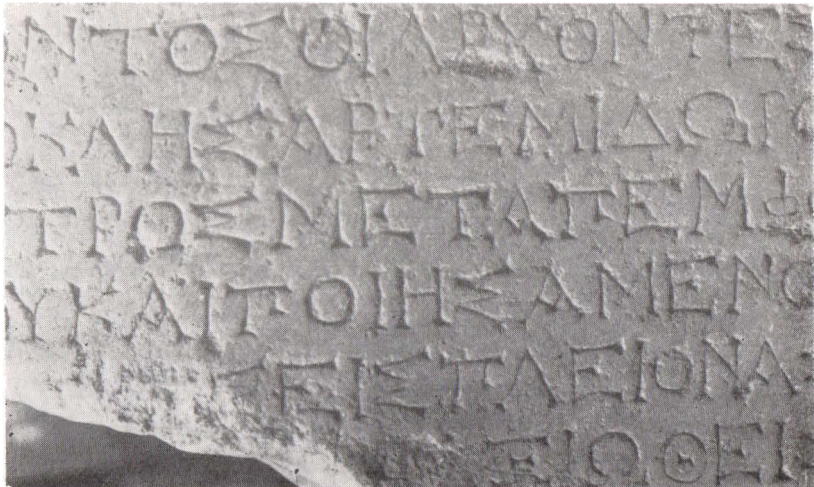 ΟΝΤΟΣΟΙΑΡΧΟΝΤΕΣ
ΟΚΛΗΣΑΡΤΕΜΙΔΩΡΟ
ΤΡΩΣΜΕΤΑΠΕΜΦ
ΟΥΚΑΙΠΟΙΗΣΑΜΕΝΟ
ΕΙΣΠΛΕΙΟΝΑ
ΕΙΩΘΕΙ